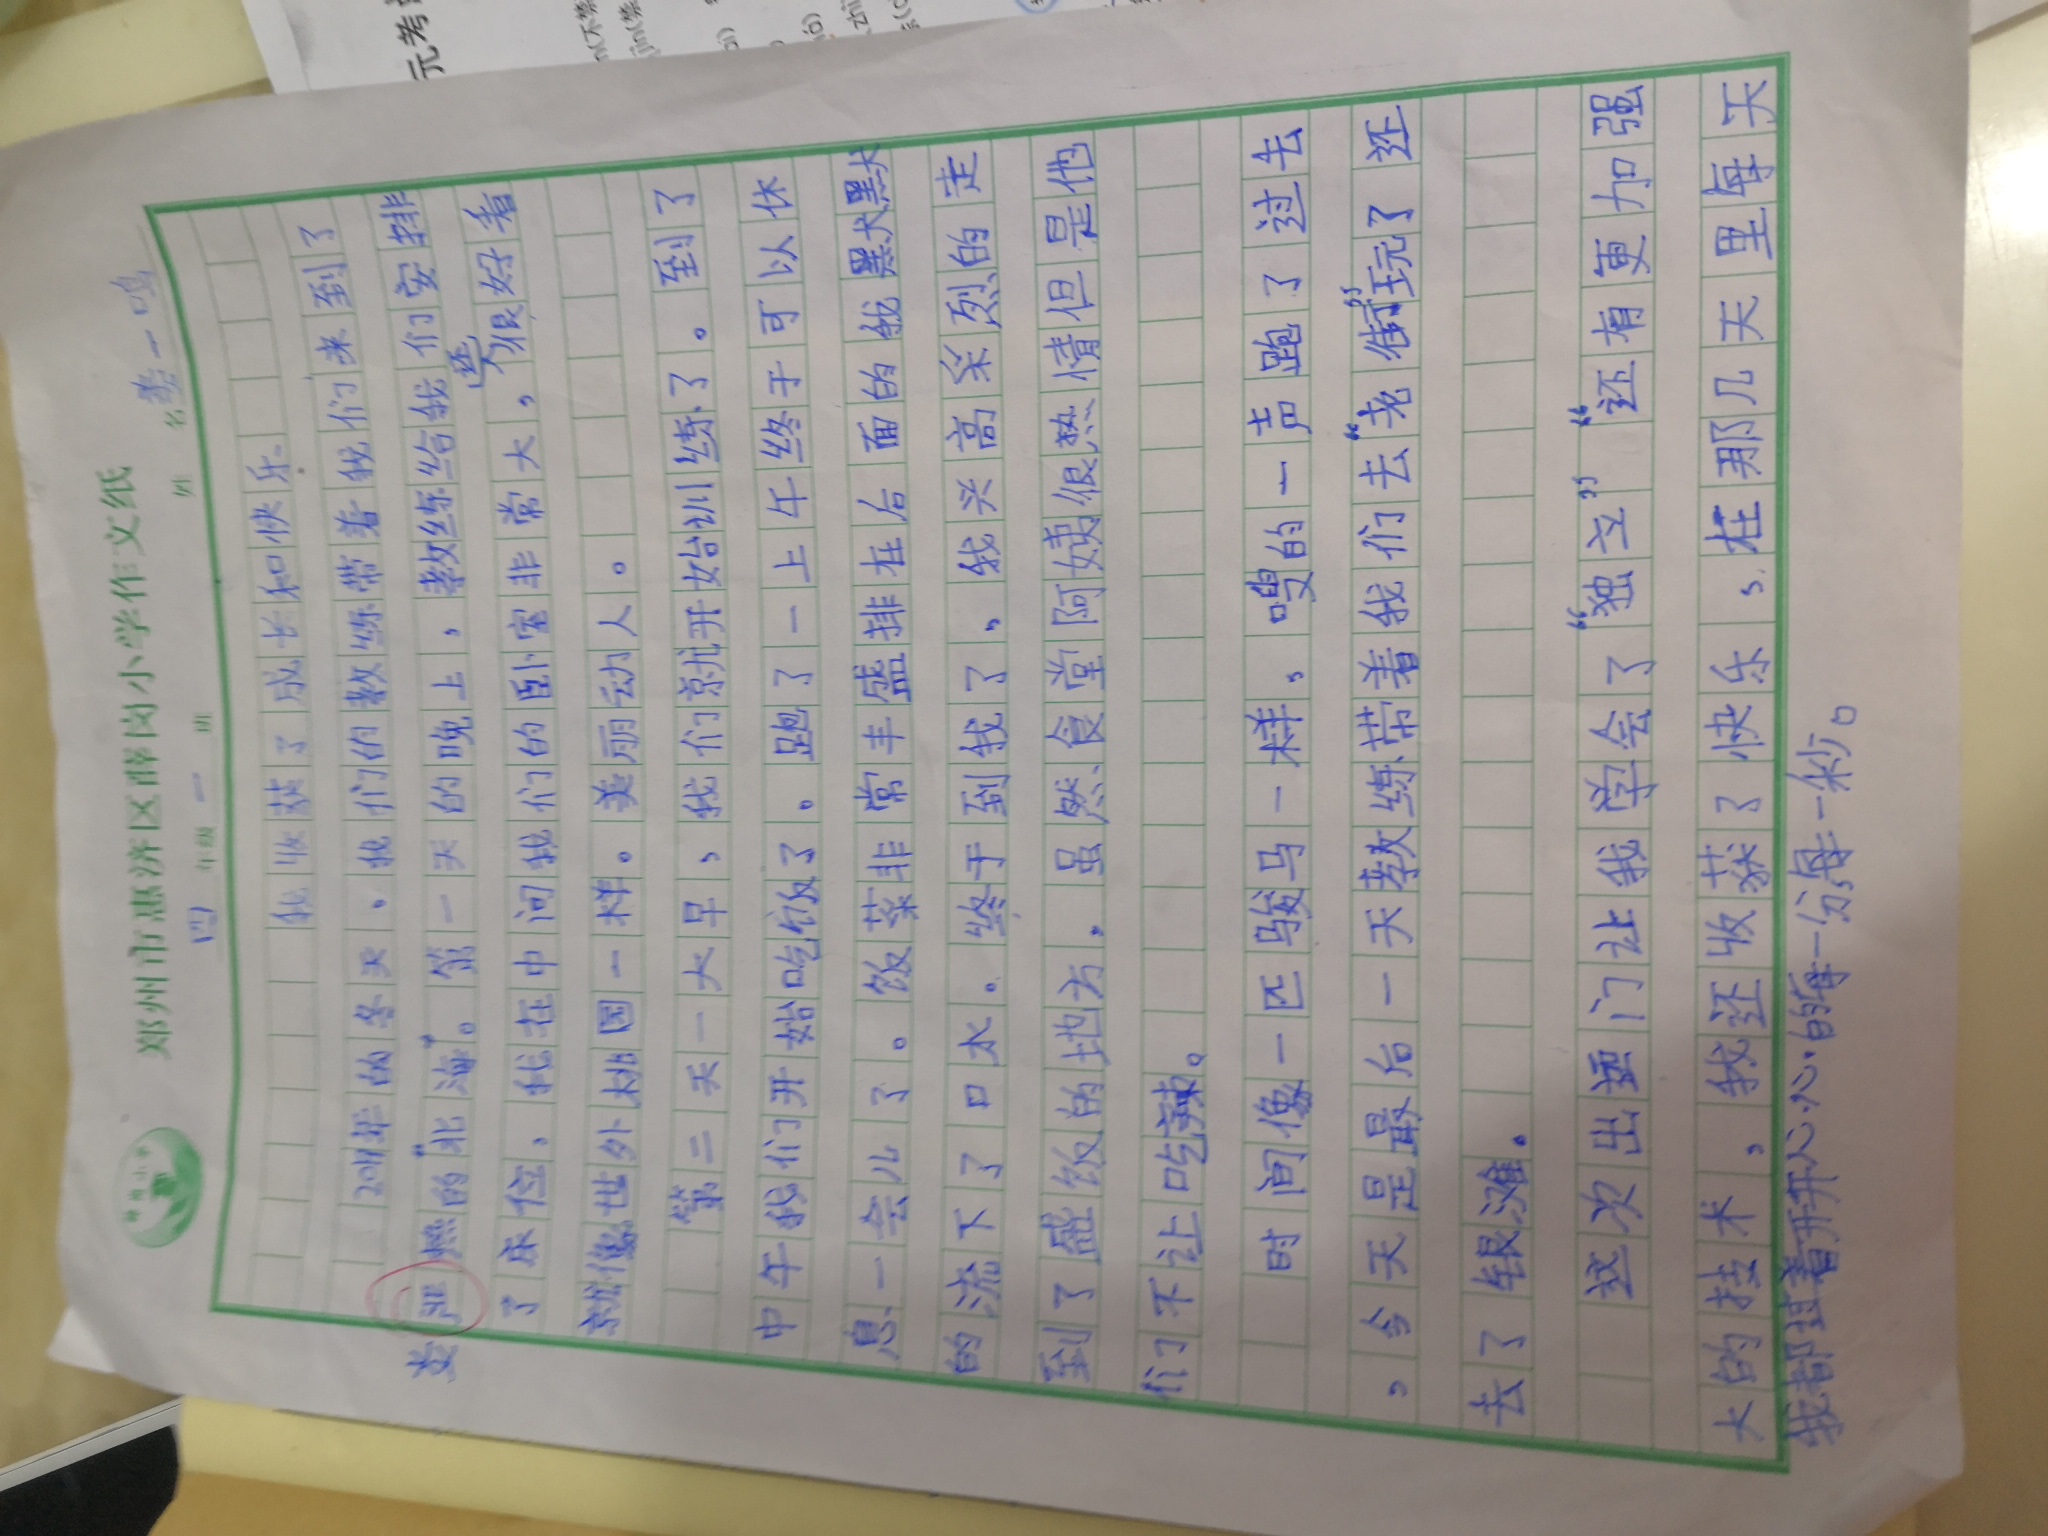 郑州市惠济区薛岗小学作文纸
四 年级 一 班 姓 名 一鸣
我收获了成长和快乐
2011年的冬天,我们的教练带着我们来到了
炎
燃的“北海”。第一天的晚上,教练给我们安排
了床位,我在中间我们的卧室非常大,还很好看
就像世外桃园一样。美丽动人。
第二天一大早,我们就开始训练了。到了
中午我们开始吃饭了。跑了一上午终于可以休
息一会儿了。饭菜非常丰盛排在后面的我默默
的流下了口水。终于到我了,我兴高采烈的走
到了盛饭的地方,虽然食堂阿姨很热情但是他
们不让吃辣。
时间像一匹骏马一样,嗖的一声跑了过去
,今天是最后一天教练带着我们去“老街”玩了还
去了银滩.
这次出远门让我学会了“独立”“还有更加强
大的技术,我还收获了快乐,在那几天里每天
我都过着开开心心的每一分每一秒。
元考